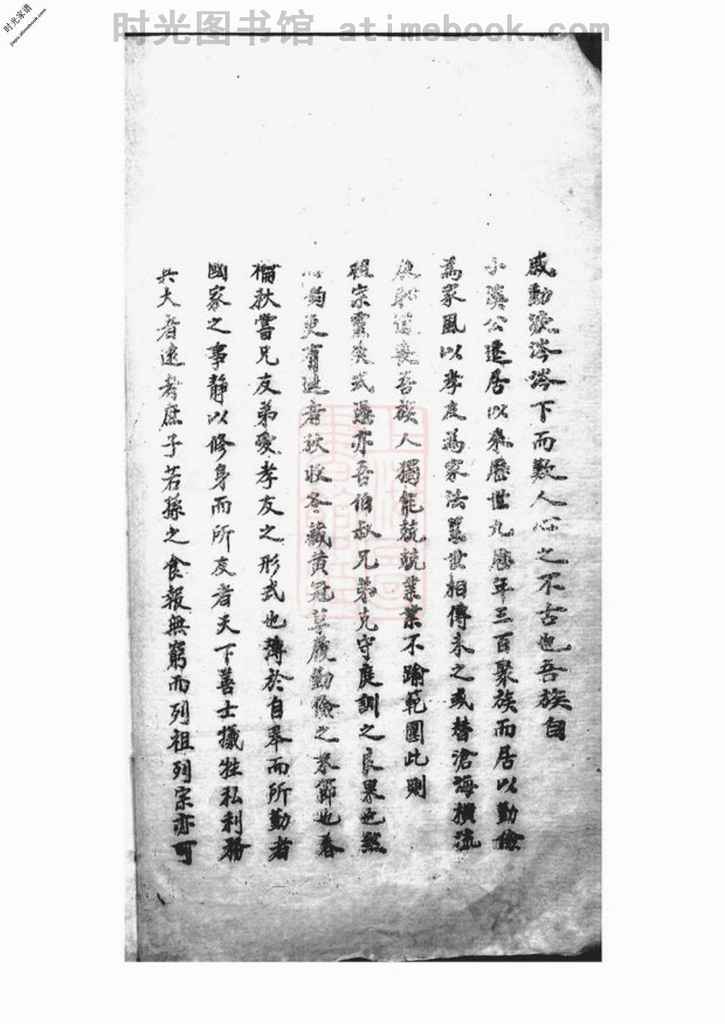 时光图书馆 atimebook.com
时光家谱
jiapu.atimebook.com
感動淚涔涔下而歎人心之不古也吾族自
溪公遷居以來歷世九歷年三百聚族而居以勤儉
為家風以孝友為家法累世相傳未之或替滄海橫流
吾族人獨能兢兢業業不踰範圍此則
祖宗靈爽式憑亦吾伯叔兄弟克守庭訓之良果也然
更有進者秋收冬藏黃冠草履勤儉之末節也春
禴秋嘗兄友弟愛孝友之形式也薄於自奉而所勤者
國家之事靜以修身而所友者天下善士犧牲私利務
其大者遠者庶子若孫之食報無窮而列祖列宗亦可